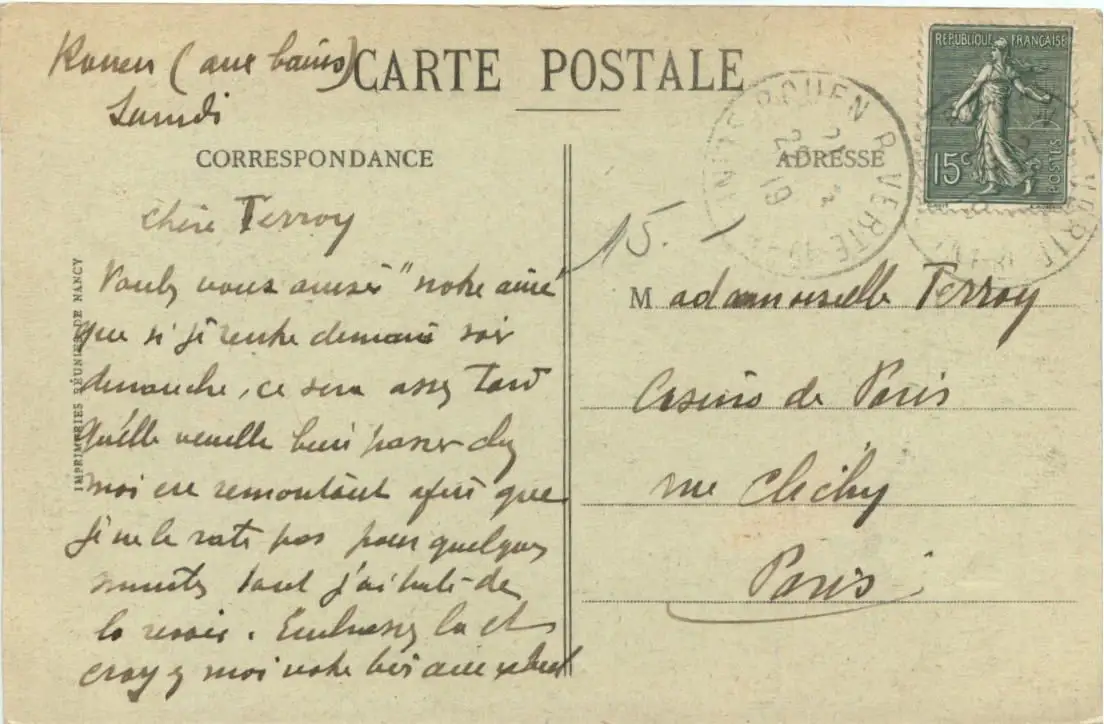 Rouen (aux bains)
Samdi
CARTE POSTALE
CORRESPONDANCE
ADRESSE
REPUBLIQUE FRANÇAISE
15c
POSTES
ROUEN R. VERTE
21
2
19
15.
IMPRIMERIES RÉUNIES DE NANCY
chère Terroy
Voulez vous aviser "notre amie
que si je rentre demain soir
dimanche, ce sera assez tard
Qu'elle veuille bien passer chez
moi en remontant afin que
je ne la rate pas pour quelques
minutes tant j'ai hate de
la revoir. Embrassez la et
croyez moi votre bien
Mademoiselle Terroy
Casino de Paris
rue Clichy
Paris